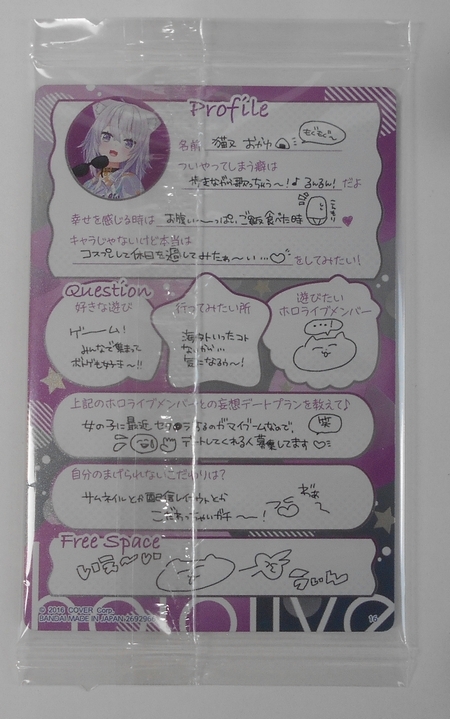 Profile
名前 猫又 おかゆ もぐもぐ〜
ついやってしまう癖は
歩きながら歌っちゃう〜!♪ るんるん! だよ
幸せを感じる時は お腹い〜っぱいご飯食べた時
キャラじゃないけど本当は
コスプレして休日を過してみたぁ〜い…♡ をしてみたい!
Question
好きな遊び
ゲーム!
みんなで集まって
ボドゲも好き〜!!
行ってみたい所
海外いったコト
ないから…
気になるわ〜!
遊びたい
ホロライブメンバー
...
上記のホロライブメンバーとの妄想デートプランを教えて♪
女の子に最近
マイブームなので、
笑
デートしてくれる人募集してます♡
自分のまげられないこだわりは?
サムネイルとか配信レイアウトとか
こだわっちゃいガチ〜!
Free Space
いえ〜い
© 2016 COVER Corp.
BANDAI MADE IN JAPAN
hololive